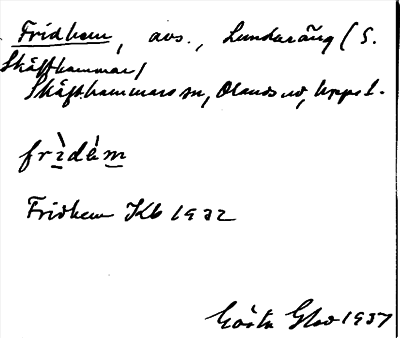 Fridhem, avs., Lundaräng (S.
Skäfthammar)
Skäfthammars sn, Olands hd, Uppsl.
frìdém
Fridhem Kb 1932
Gösta Glad 1937